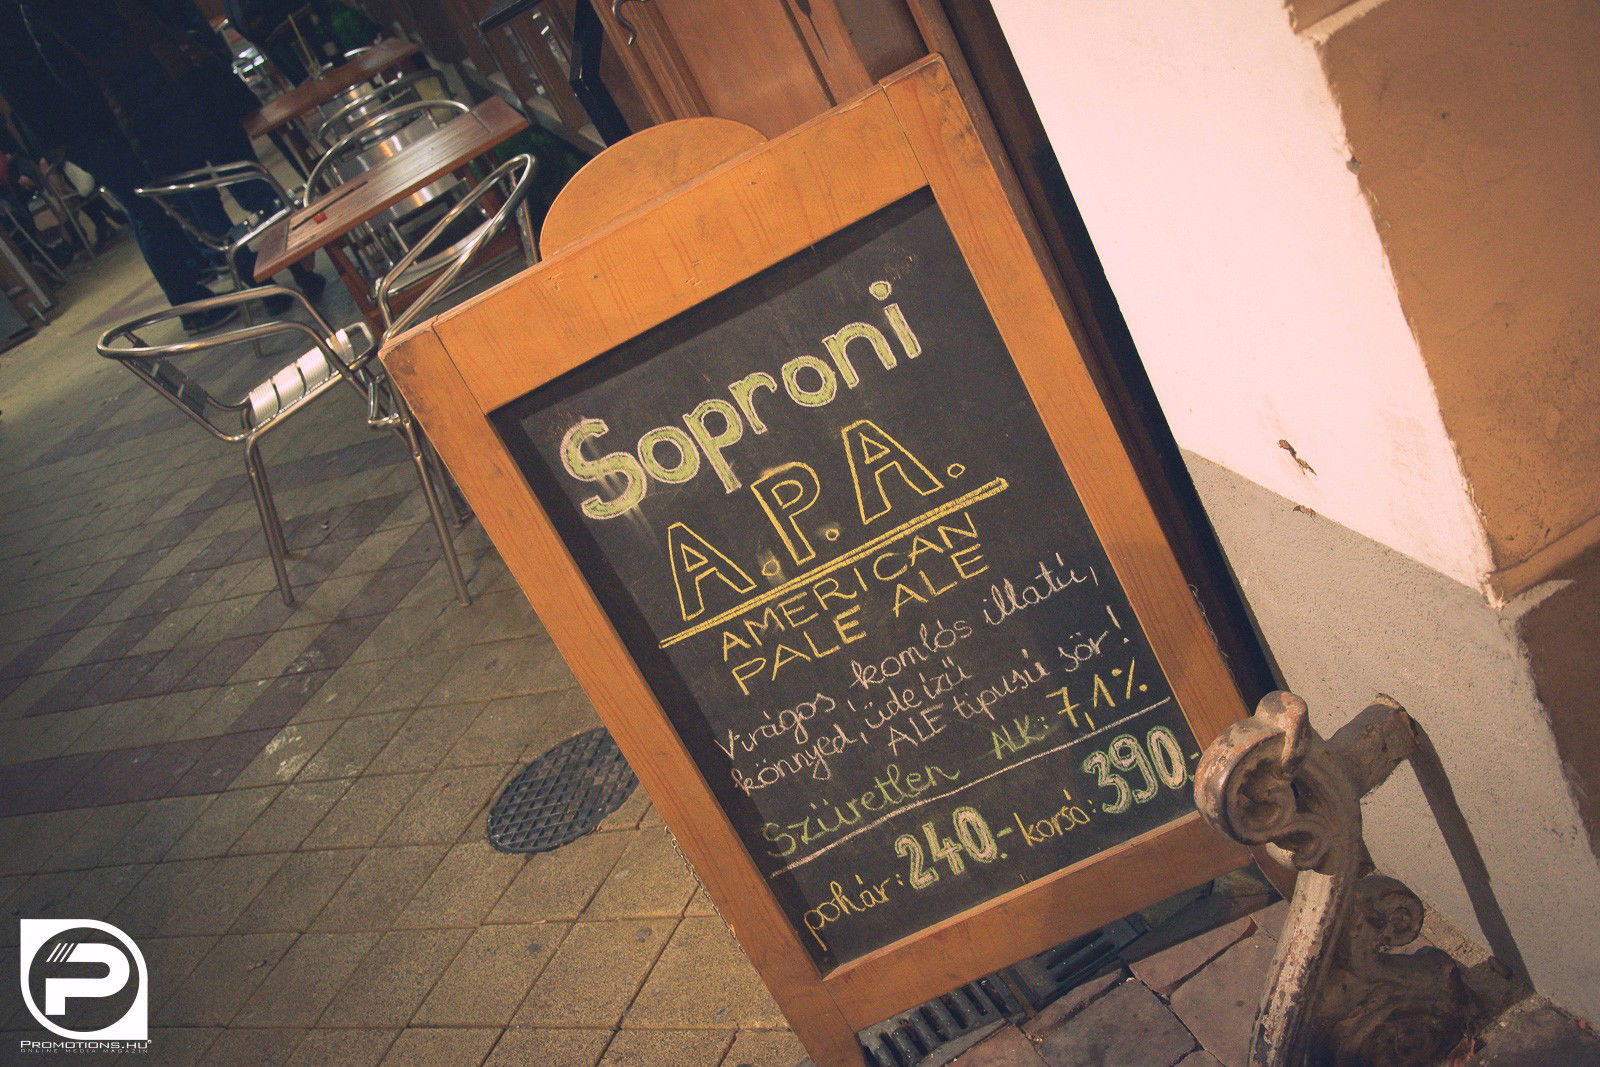 Soproni
A.P.A.
AMERICAN
PALE ALE
Virágos, komlós illatú,
könnyed, üde ízű
ALE típusú sör!
Szűretlen ALK: 7,1%
pohár: 240.- korsó: 390.-
P
PROMOTIONS.HU
ONLINE MEDIA MAGAZIN